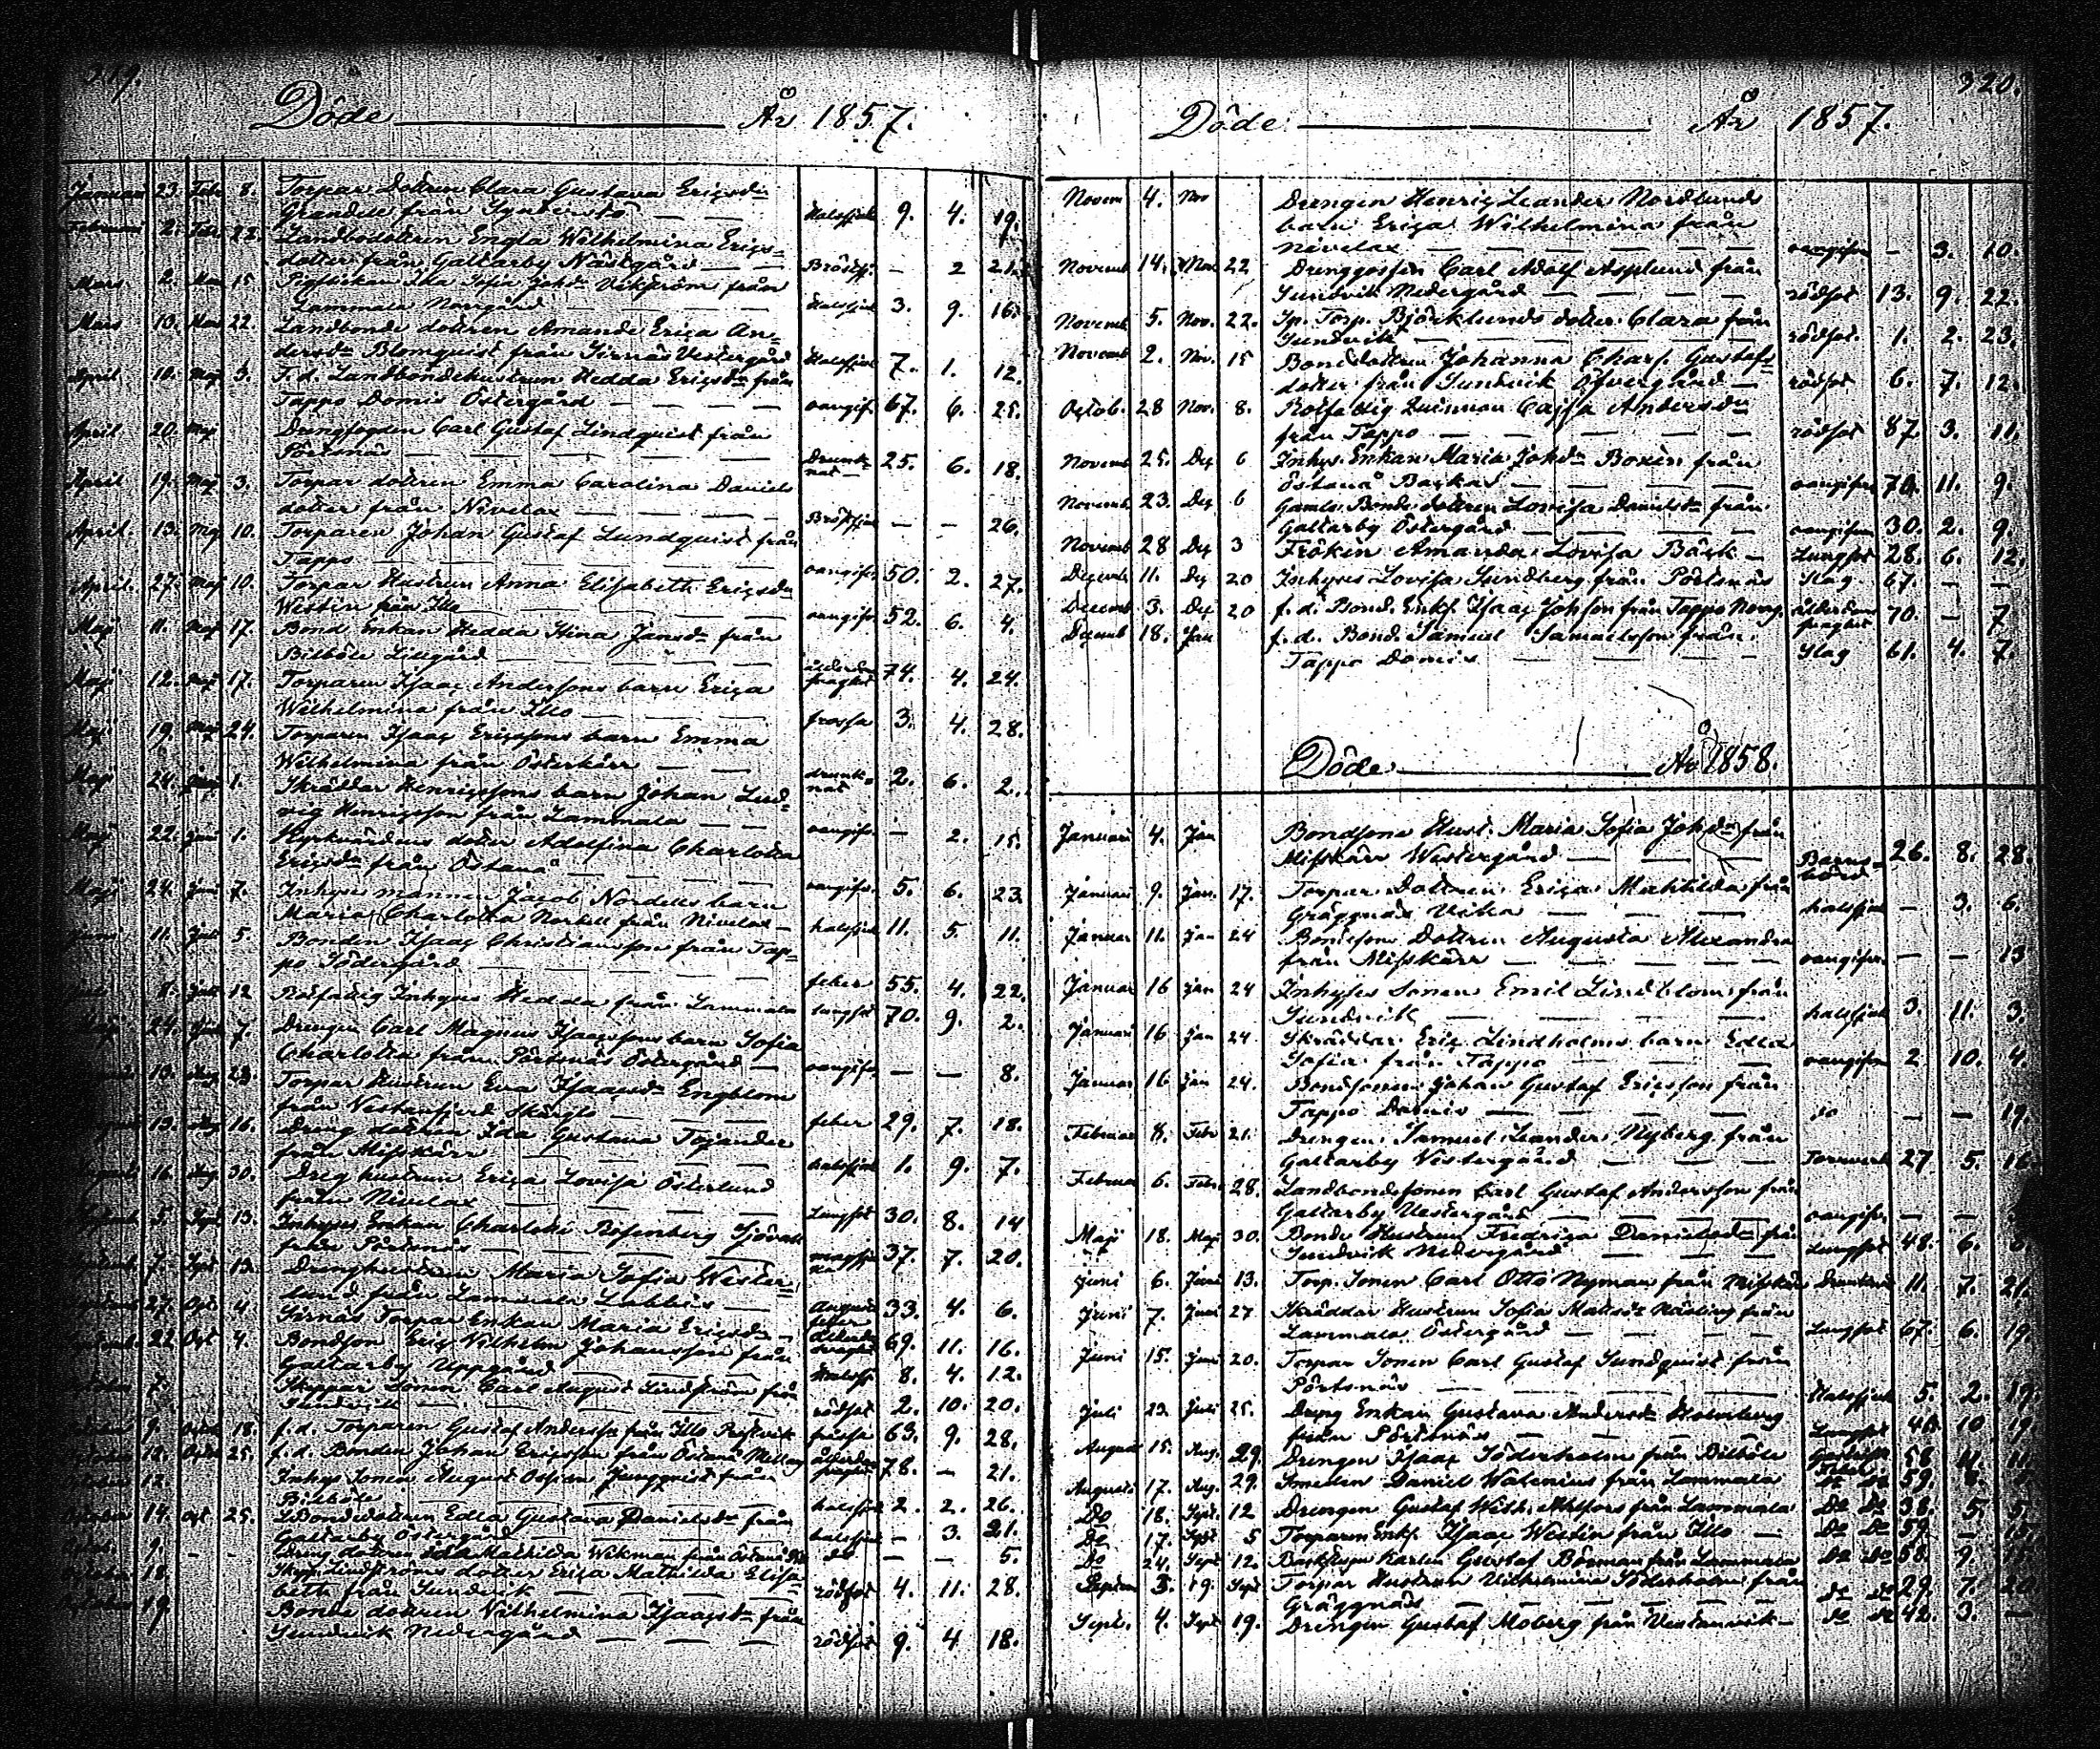 319.
Döde ——— År 1857.
Januari 23. Febr 8. Torpar Dottren Clara Gustava Ericsdr
Grandell från halssjuk 9. 4. 19.
Februari 2. Febr 22. Landbodottren Engla Wilhelmina Erics-
dotter från Galtarby Nästgård — — Bröstsj. — 2 21.
Mars 2. Mars 15 Pigflickan Ida Sofia Johsdr Vikström från
Lammala Norrgård — — halssjuk 3. 9. 16.
Mars 13. Mars 22. Landbonde dottren Amanda Erica An-
dersdr Blomquist från Sirnäs Vestergård halssjuk 7. 1. 12.
April 10. Maj 3. F.d. Landbondehustrun Hedda Ericsdr från
Tappo Domis Östergård — — — oangif. 67. 6. 25.
April 20. Maj Drengfogden Carl Gustaf Lindquist från
Pörtsnäs — — — Drunk-
nat — 25. 6. 18.
April 19. Maj 3. Torpar dottren Emma Carolina Daniels
dotter från Nivelax — — — Bröstsjuk — — 26.
April. 13. Maj 10. Torparen Johan Gustaf Lundquist från
Tappo — — — oangifv. 50. 2. 27.
April. 27. Maj 10. Torpar Hustrun Anna Elisabeth Ericsdr
Westin från Illo — — — oangifv. 52. 6. 4.
Maj 11. Maj 17. Bond Enkan Hedda Stina Jansdr från
Bilböle Lillgård — — — 74. 4. 24.
Maj 12. Maj 17. Torparen Isaac Anderssons barn Erica
Wilhelmina från Illo — — — frossa 3. 4. 28.
Maj 19. Maj 24. Torparen Isaac Ericssons barn Emma
Wilhelmina från Österkärr — — drunk-
nat 2. 6. 2.
Maj 24. Juni 1. Skräddar Henricssons barn Johan Lud-
vig Henricsson från Lammala — — oangifv. — 2. 15.
Maj 22. Juni 1. dotter Adolfina Charlotta
Ericsdr från Östanå — — — oangifv. 5. 6. 23.
Maj 24. Juni 7. Inhyses mannen Jacob Nordells barn
Maria Charlotta Nordell från Nivelax — halssjuk 11. 5 11.
Juni 11. Juli 5. Bonden Isaac Christiansson från Tap-
po Södergård — — — feber 55. 4. 22.
Juli 1. Juli 12 Rotfattig Inhyses Hedda från Lammala lungsot 70. 9. 2.
Maj 24. Juni 7. Drengen Carl Magnus Isaacssons barn Sofia
Charlotta från Pörtsnäs Östergård — oangifv. — — 8.
13. Aug 23. Torpar Hustrun Eva Isaacsdr Engblom
från Vestanfjerd — — feber 29. 7. 18.
13. Aug 16. Dreng dottren Ida Gustava Tojander
från Misskärr — — — halssjuk 1. 9. 7.
16. Aug. 30. Dreg hustrun Erica Lovisa Österlund
från Nivelax — — — Lungsot 30. 8. 14
5. Sept 13. Inhyses Enkan Charlotta Rosenberg Sjövall
från Pörtsnäs — — — 37. 7. 20.
7. Sept 13. Dreng hustrun Maria Sofia Wester-
lund från Lammala Labbis — 33. 4. 6.
27. Oct 4. Sirnäs Torpar Enkan Maria Ericsdr — 69. 11. 16.
22 Oct 4. Bondson Eric Vilhelm Johansson från
Galtarby Uppgård — — halssj. 8. 4. 12.
7. Skeppar Sonen Carl August Lindström från
Sundvik — — — rödsot 2. 10. 20.
9. 18. f.d. Torparen Gustaf Anderss från Illo frossa 63. 9. 28.
12. 25. f.d. Bonden Johan Ericsson från Östanå 78. — 21.
12. Inhys Sonen August Oscar Jungqvist från
Bilböle — — — halssjuk 2. 2. 26.
14. Oct. 25. Bondedottren Edla Gustava Danielsdr från
Galtarby Östergård — — — halssjuk — 3. 21.
9. — — Dreng dottren Ida Mathilda Wikman från Östanå do — — 5.
18. Skepp. Lindströms dotter Erica Mathilda Elisa-
beth från Sundvik — — — rödsot 4. 11. 28.
19 Bonde dottren Vilhelmina Isaacsdr från
Sundvik Nedergård — — — rödsot 9. 4 18.
320.
Döde ——— År 1857.
Novem 4. Nov Drengen Henric Leander Nordlunds
barn Erica Wilhelmina från
Nivelax — — — oangifven — 3. 10.
Novemb 14. Nov. 22 Drenggossen Carl Adolf Asplund från
Sundvik Nedergård — — — rödsot 13. 9. 22.
Novemb. 5. Nov. 22. Sp. Torp. Björklunds dotter Clara från
Sundvik — — — rödsot. 1. 2. 23.
Novemb 2. Nov. 15 Bondedottren Johanna Charl. Gustafs
dotter från Sundvik Öfvergård — rödsot 6. 7. 12.
Octob. 28 Nov. 8. Rotfattig Quinnan Cajsa Andersdr
från Tappo — — — rödsot 87. 3. 11.
Novemb 25. Dec 6 Inhys. Enkan Maria Johsdr Boxén från
Östanå Backas — — — oangifven 70. 11. 9.
Novemb. 23. Dec 6 Gamle Bonde dottren Lovisa Danielsdr från
Galtarby Östergård — — — oangifven 30. 2. 9.
Novemb 28 Dec 3 Fröken Amanda Lovisa Bäck — Lungsot 28. 6. 12.
Decemb. 11. Dec 20 Inhyses Lovisa Sundberg från Pörtsnäs Slag 67. — —
Decemb 3. Dec 20 f.d. Bond. Enkl. Isaac Johsson från Tappo Norrg. 70. — 7
Decemb 18. Jan f.d. Bond. Samuel Samuelsson från
Tappo Domis — — — Slag 61. 4. 7.
Döde ——— År 1858.
Januari 4. Jan Bondsons Hust. Maria Sofia Johsdr från
Misskärr Westergård — — — Barns-
börd 26. 8. 28.
Januari 9. Jan. 17. Torpar Dottren Erica Mathilda från
Gräggnäs Vika — — — halssjuk — 3. 6.
Januar 11. Jan 24 Bondesons Dottren Augusta Alexandra
från Misskärr — — — oangifven. — — 13
Januar 16 Jan 24 Inhyses Sonen Emil Lindblom från
Sundvik — — — halssjuk 3. 11. 3.
Januari 16 Jan 24 Skräddar Eric Lindholms barn Edla
Sofia från Tappo — — — oangifven 2 10. 4.
Januar 16 Jan 24. Bondsonen Johan Gustaf Ericsson från
Tappo Domis — — — do — — 19.
Februar 8. Febr 21. Drengen Samuel Leander Nyberg från
Galtarby Vestergård — — — Torrverk 27 5. 16.
Februar 6. Febr. 28. Landbondesonen Carl Gustaf Andersson från
Galtarby Vestergård — — — oangifv. — —
Maji 18. Maji 30. Bonde Hustrun Fredrica Danielsdr från
Sundvik Nedergård — — Lungsot 48. 6. 6.
Juni 6. Juni 13. Torp. Sonen Carl Otto Nyman från Misskärr Drunknat 11. 7. 21.
Juni 7. Juni 27 Skräddar Hustrun Sofia Matsdr Näsling från
Lammala Östergård — — — Lungsot 67. 6. 19.
Juni 15. Juni 20. Torpar Sonen Carl Gustaf Sundquist från
Pörtsnäs — — — Halssjuk 5. 2. 19.
Juli 23. Juli 25. Dreng Enkan Gustava Andersdr Holmberg
från Pörtsnäs — — — Lungsot 10 19.
Augusti 15. Aug. 29. Drengen Isaac Söderholm från Bilböle 58 11. 11.
Augusti 17. Aug. 29. Smeden Daniel Walenius från Lammala Do Do 59.
Do 18. Sept 12 Drengen Gustaf Wilh. Alfors från Lammala Do Do 38. 5. 5.
Do 17. Sept 5 Torparen Enkl. Isaac Westin från Illo — Do Do 59. — 15.
Do 24. Sept 12. Karlen Gustaf Börman från Lammala Do Do 58. 9.
Septem 3. 19. Sept Torpar Hustrun Vilhelmina Söderholm från
Gräggnäs — — — do do 29. 7. 20
Sept. 4. Sept 19. Drengen Gustaf Moberg från Vestanvik — do do 42. 3. —